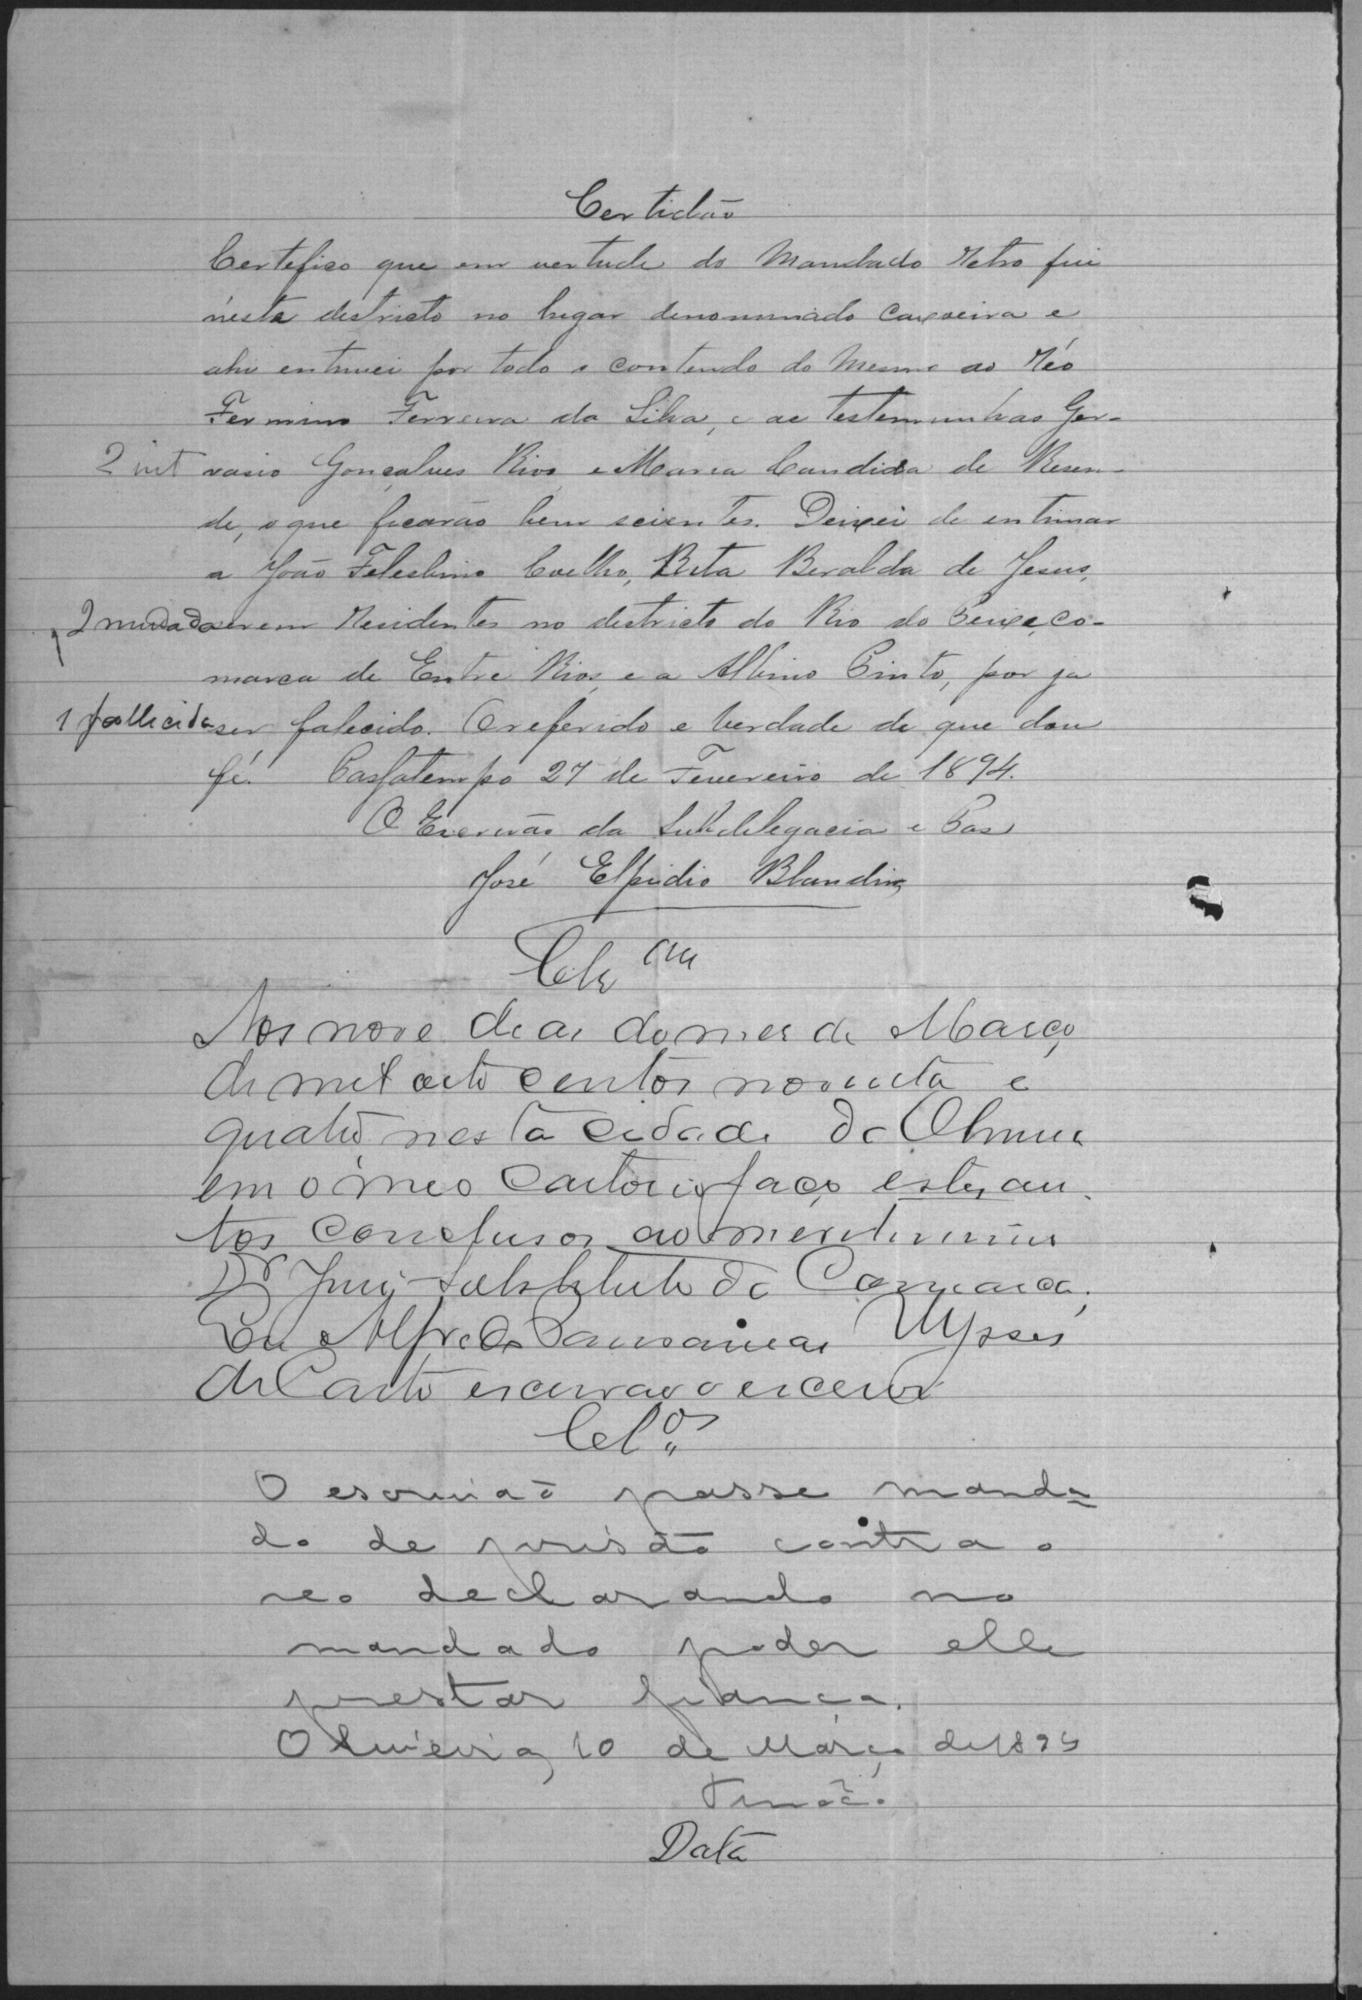 Certidão
Certefico que em vertude do Mandado Retro fui
n'esta destricto no lugar denominado Caxoeira e
ahi entimei por todo o contendo do Mesmo ao Réo
Fermino Ferreira da Silva, e as testemunhas Ger-
2 int vasio Gonçalves Rios, e Maria Candida de Resen-
de, o que ficarão bem scientes. Deixei de entimar
a João Felesbino Coelho, Rita Beralda de Jesus,
2 mudados serem Residentes no destricto do Rio do Peixe, co-
marca de Entre Rios, e a Albino Pinto, por ja
1 fallecido ser falecido. O referido e verdade de que dou
fé. Passatempo 27 de Fevereiro de 1894.
O Escrivão da Subdelegacia e Pas
José Elpidio Blandim
Clsam
Aos nove dias do mes de Março
de mil oito centos noventa e
quatro, nesta cidade da Olivera
em o meo cartorio faço estes au-
tos conclusos ao meretissimo
Dr Juiz Substituto da Comarca.
Eu Alfredo Pausanias Ulysses
de Casto escrivão o escrevi
Clos
O escrivaõ passe manda-
do de prisão contra o
reo declarando no
mandado poder elle
prestar fiança.
Oliveira, 10 de Março de 1894
Data